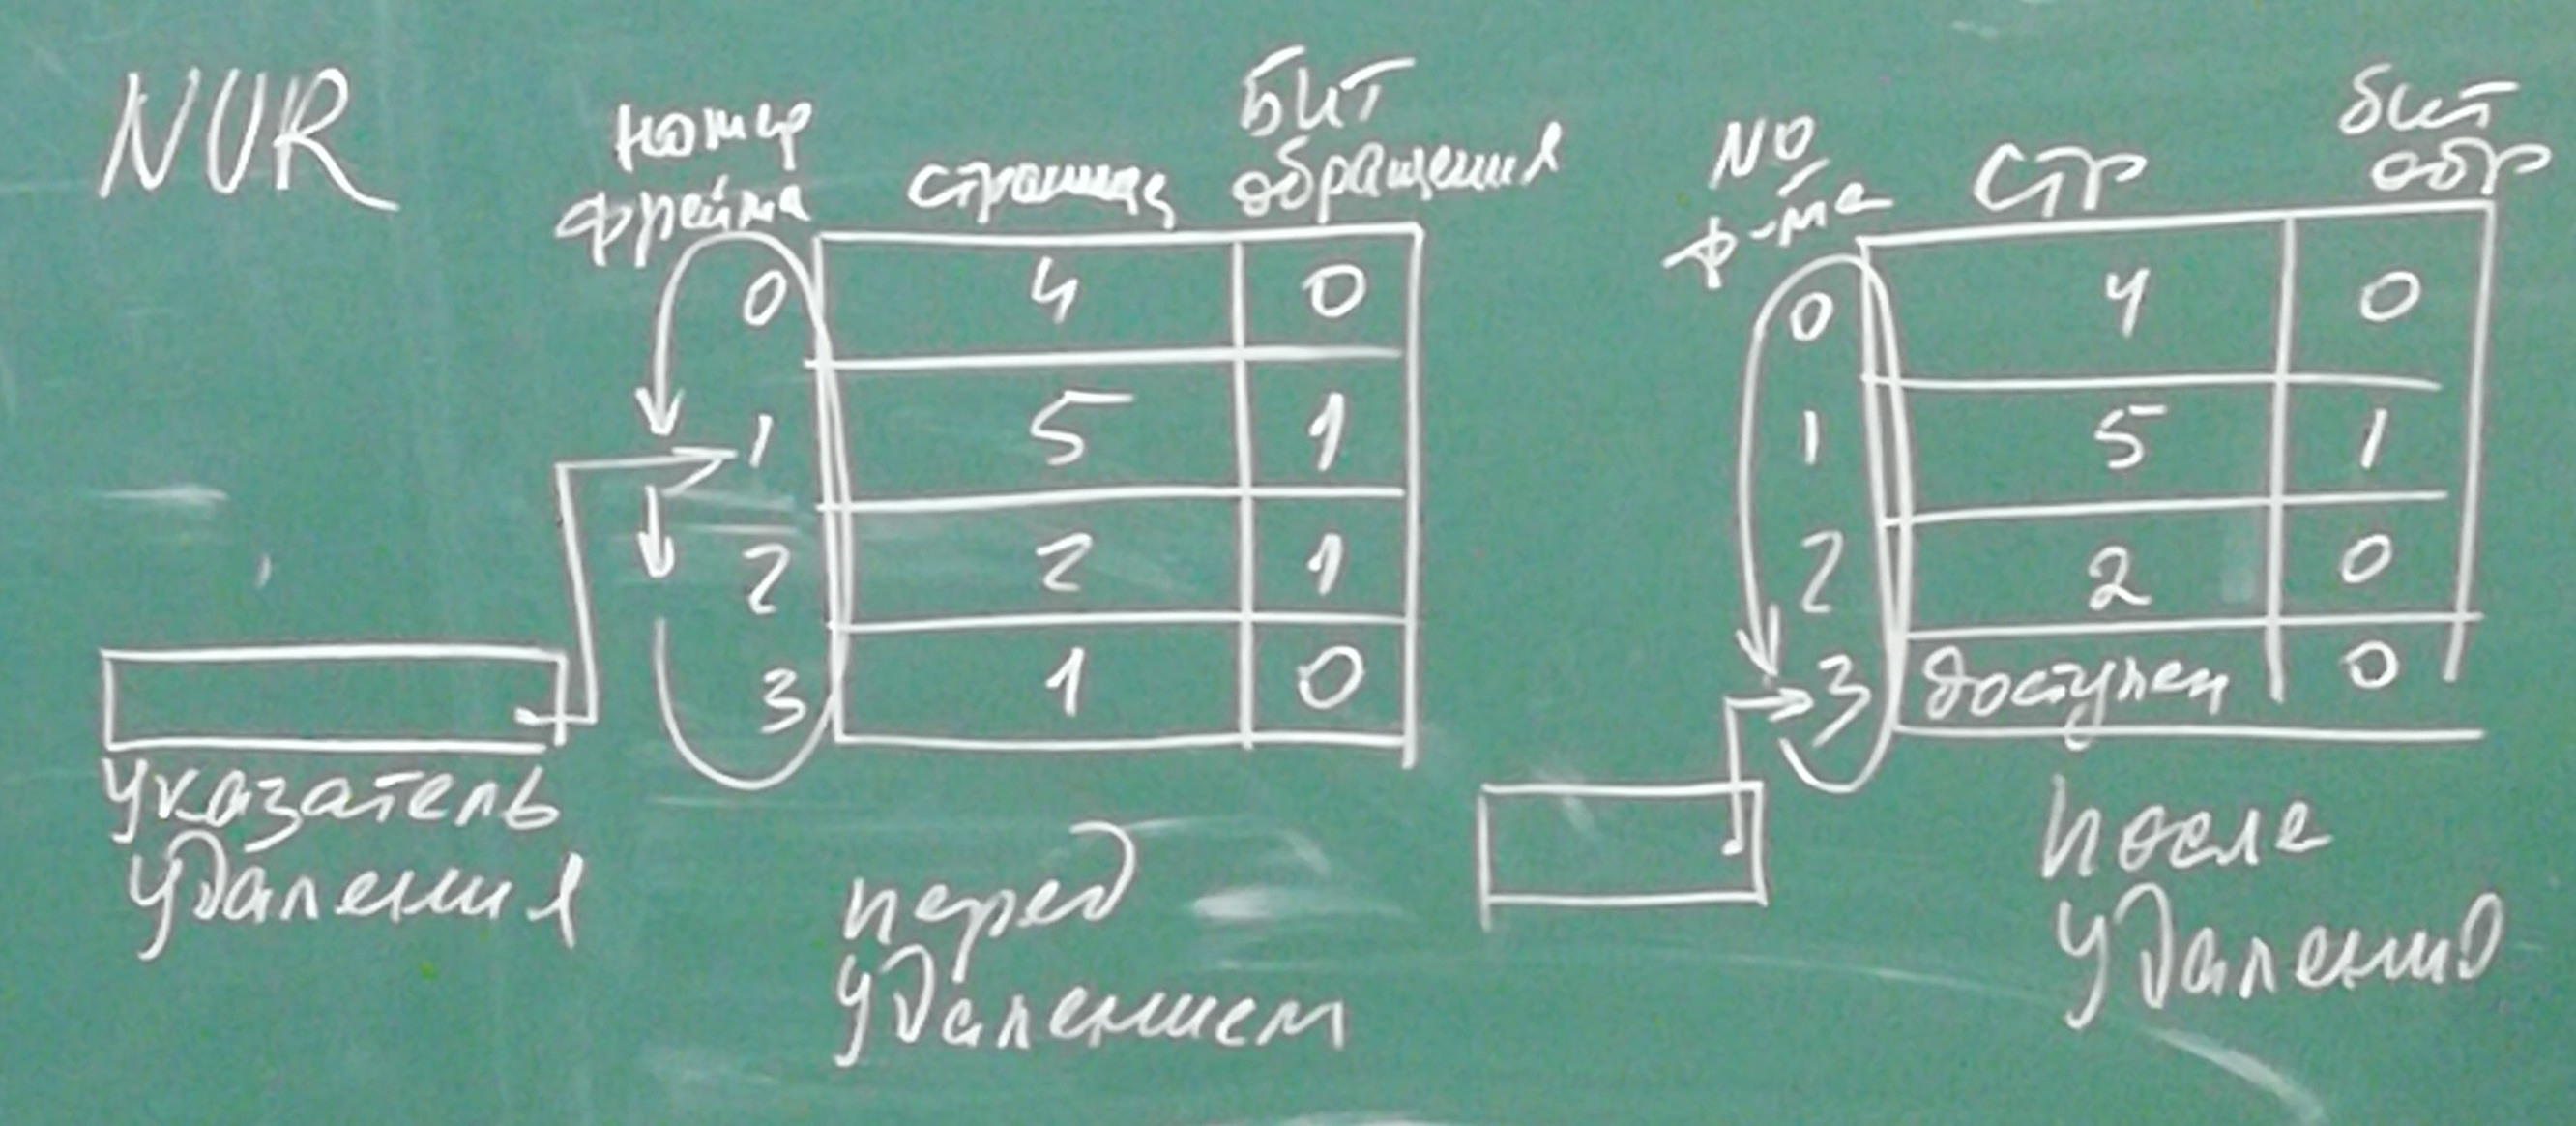 NUR
номер
фрейма
страница
бит
обращения
0 4 0
1 5 1
2 2 1
3 1 0
указатель
удаления
перед
удалением
No
ф-ма
стр
бит
обр
0 4 0
1 5 1
2 2 0
3 доступен 0
после
удаления